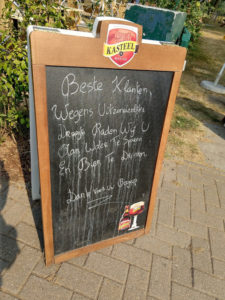 KASTEEL
Beste Klanten
Wegens Uitzonderlijke
Droogte Raden Wij U
Aan Water Te Sparen
En Bier Te Drinken.
Dank voor uw Begrip